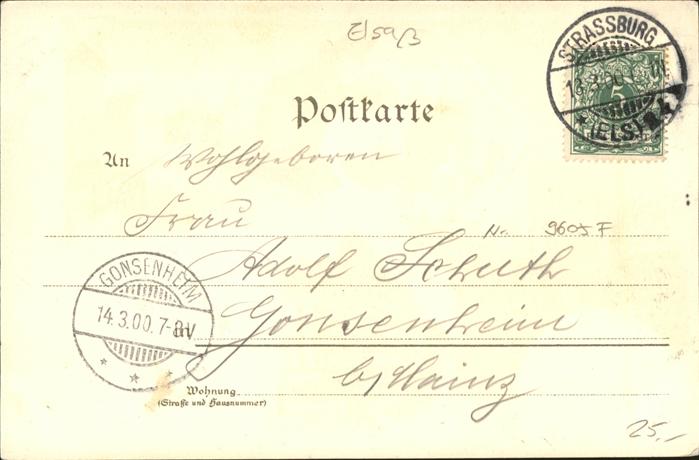 Elsa/3
STRASSBURG
13.3.00.
(ELS)
5
Postkarte
An Wohlgeboren
Frau
N. 9605 F
Adolf Schuth
GONSENHEIM
14.3.00.7-8V
in Gonsenheim
b/Mainz
Wohnung
(Straße und Hausnummer)
25.-